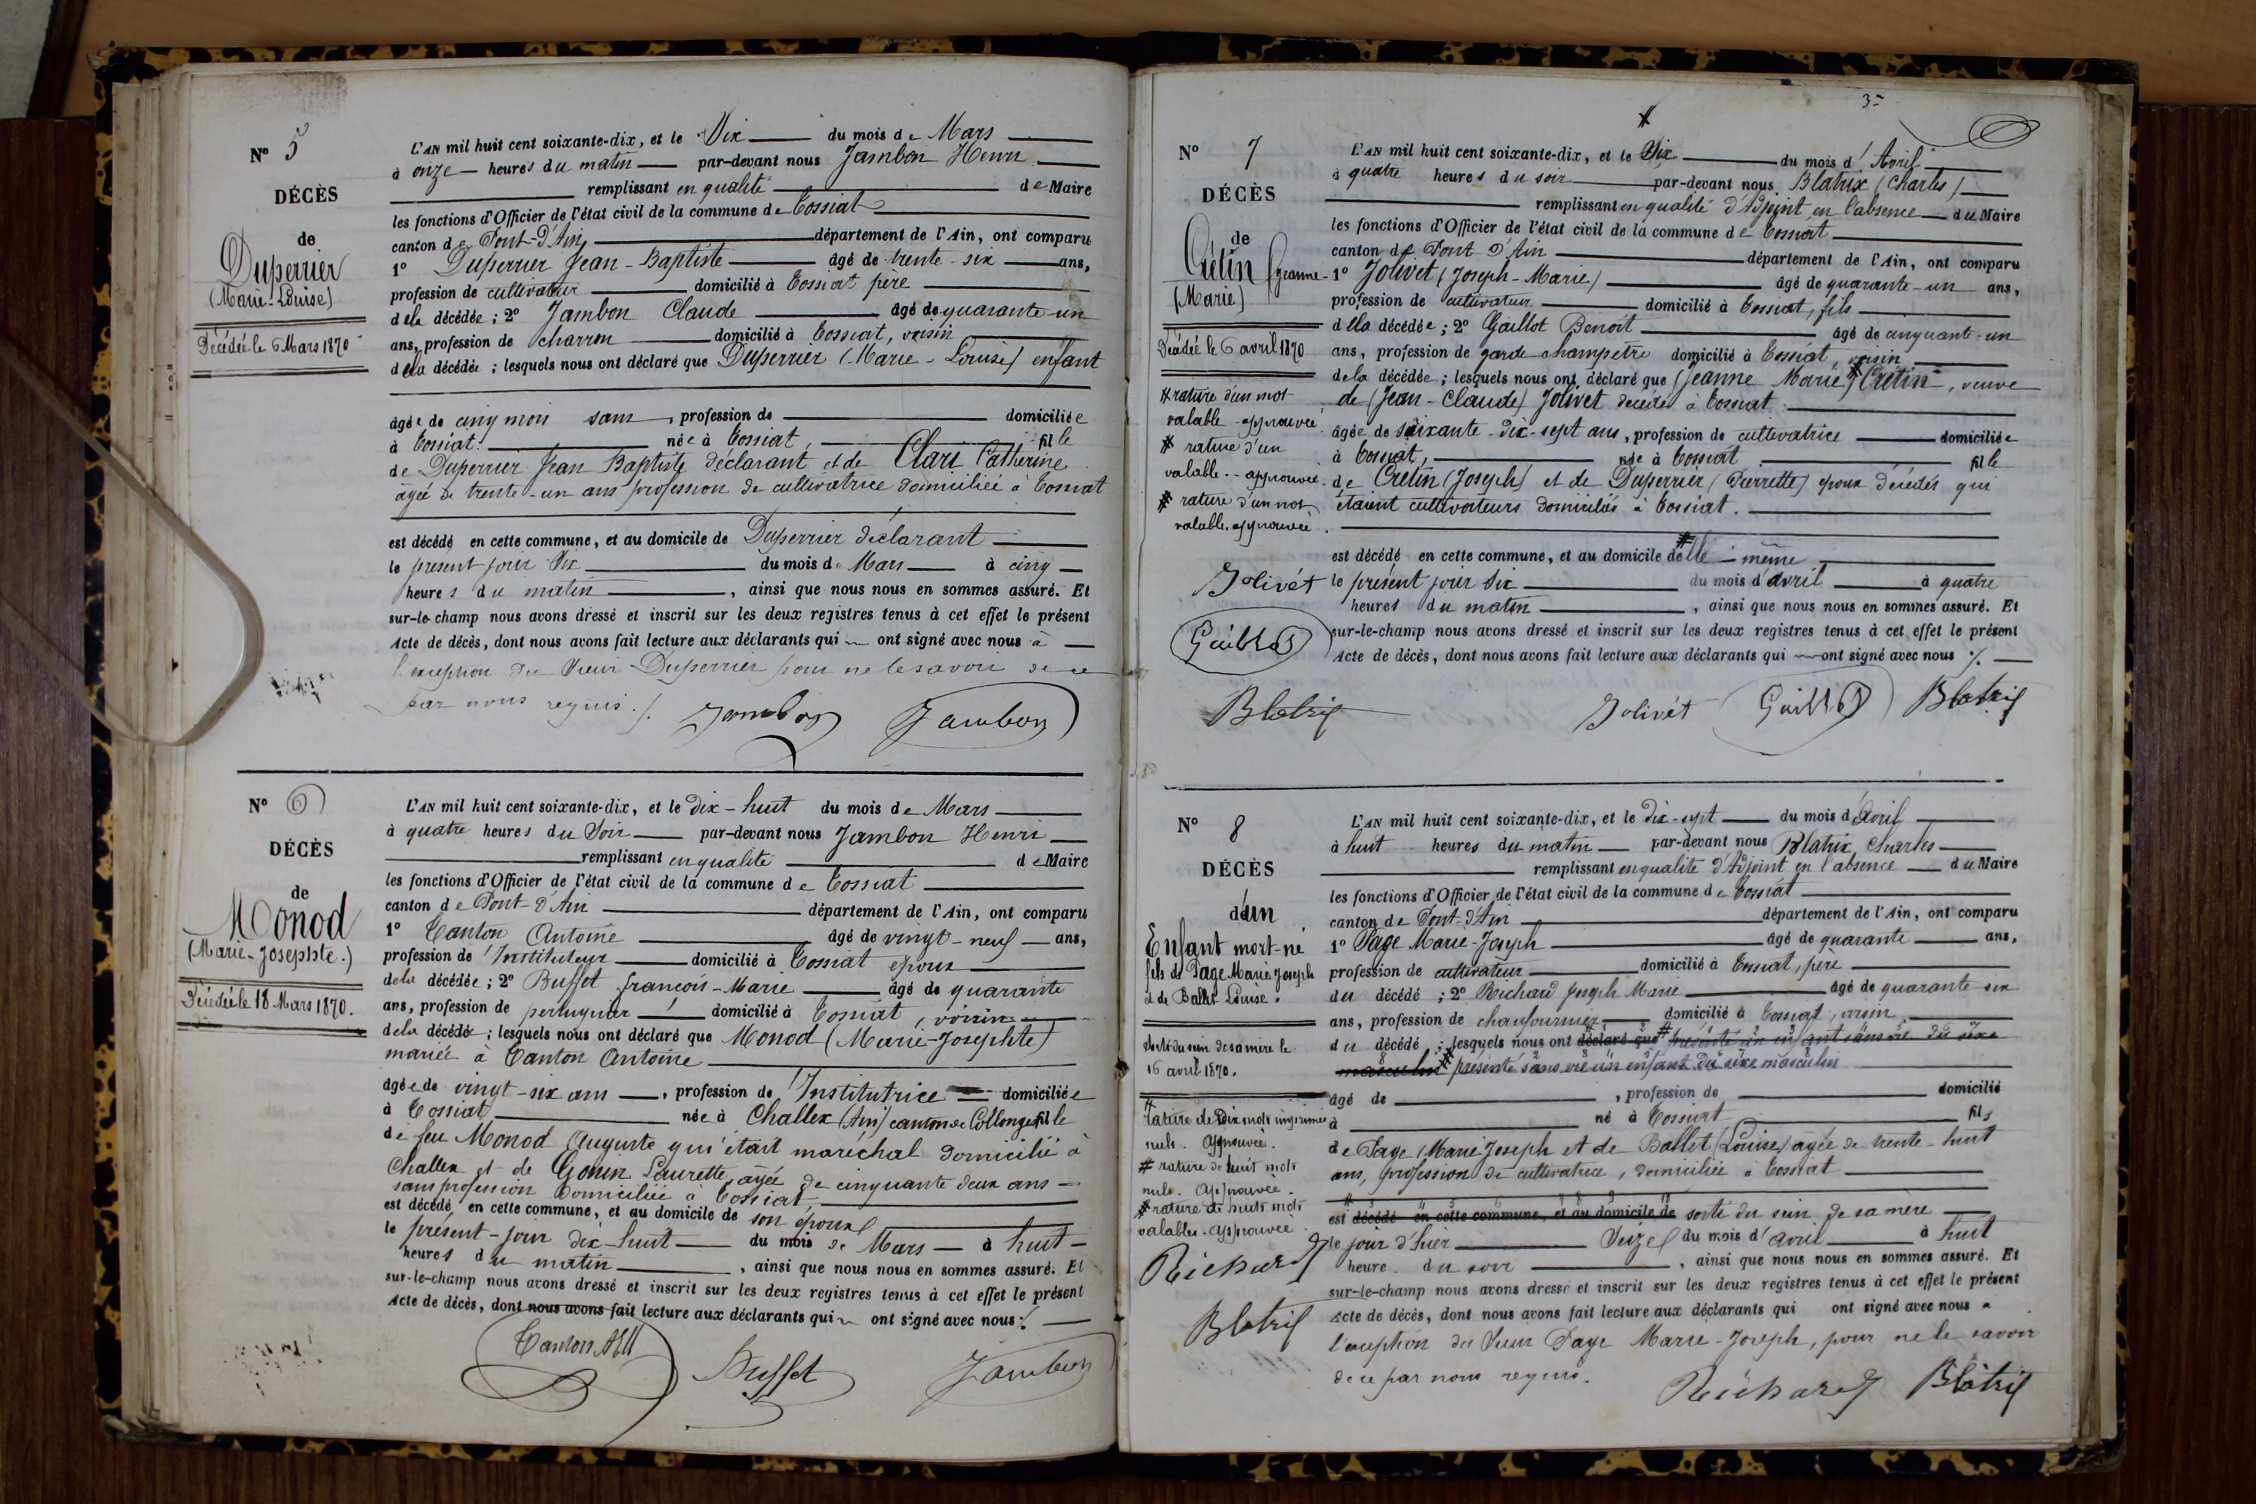 Nº 5
DÉCÈS
de
Duperrier
(Marie-Louise)
Décédée le 6 Mars 1870
L'AN mil huit cent soixante-dix, et le Six du mois de Mars
à onze heures du matin par-devant nous Jambon Henri
remplissant en qualité de Maire
les fonctions d'Officier de l'état civil de la commune de Tossiat
canton de Pont-d'Ain département de l'Ain, ont comparu
1º Duperrier Jean-Baptiste âgé de trente-six ans,
profession de cultivateur domicilié à Tossiat père
de la décédée ; 2º Jambon Claude âgé de quarante-un
ans, profession de charron domicilié à Tossiat, voisin
de la décédée ; lesquels nous ont déclaré que Duperrier (Marie-Louise) enfant
âgée de cinq mois sans, profession de domiciliée
à Tossiat née à Tossiat, fille
de Duperrier Jean Baptiste déclarant et de Clari Catherine
âgée de trente-un ans profession de cultivatrice domiciliée à Tossiat
est décédé en cette commune, et au domicile de Duperrier déclarant
le présent jour Six du mois de Mars à cinq
heures du matin, ainsi que nous nous en sommes assuré. Et
sur-le-champ nous avons dressé et inscrit sur les deux registres tenus à cet effet le présent
Acte de décès, dont nous avons fait lecture aux déclarants qui ont signé avec nous à
l'exception du Sieur Duperrier pour ne le savoir de ce
par nous requis ./.
Jambon Jambon
Nº 6
DÉCÈS
de
Monod
(Marie-Josephte.)
Décédée le 18 Mars 1870.
L'AN mil huit cent soixante-dix, et le dix-huit du mois de Mars
à quatre heures du Soir par-devant nous Jambon Henri
remplissant en qualité de Maire
les fonctions d'Officier de l'état civil de la commune de Tossiat
canton de Pont-d'Ain département de l'Ain, ont comparu
1º Tanton Antoine âgé de vingt-neuf ans,
profession de Instituteur domicilié à Tossiat époux
de la décédée ; 2º Buffet françois-Marie âgé de quarante
ans, profession de domicilié à Tossiat, voisin
de la décédée ; lesquels nous ont déclaré que Monod (Marie-Josephte)
mariée à Tanton Antoine
âgée de vingt-six ans, profession de Institutrice domiciliée
à Tossiat née à Challex (Ain) canton de Collonges fille
de feu Monod Auguste qui était maréchal domicilié à
Challex et de Gonin Laurette, âgée de cinquante deux ans
sans profession domiciliée à Tossiat
est décédé en cette commune, et au domicile de son époux
le présent-jour dix-huit du mois de Mars à huit
heures du matin, ainsi que nous nous en sommes assuré. Et
sur-le-champ nous avons dressé et inscrit sur les deux registres tenus à cet effet le présent
Acte de décès, dont nous avons fait lecture aux déclarants qui ont signé avec nous ./.
Buffet Jambon
3
Nº 7
DÉCÈS
de
Crétin (Jeanne-
(Marie)
Décédée le 6 avril 1870
# rature d'un mot
valable approuvée.
# rature d'un
valable approuvée.
# rature d'un mot
valable approuvée.
Jolivét
Guillot
Blatrix
L'AN mil huit cent soixante-dix, et le Six du mois d'Avril
à quatre heures du soir par-devant nous Blatrix (Charles)
remplissant en qualité d'Adjoint en l'absence du Maire
les fonctions d'Officier de l'état civil de la commune de Tossiat
canton de Pont d'Ain département de l'Ain, ont comparu
1º Jolivet (Joseph-Marie) âgé de quarante-un ans,
profession de cultivateur domicilié à Tossiat, fils
de la décédée ; 2º Guillot Benoit âgé de cinquante-un
ans, profession de garde champêtre domicilié à Tossiat, voisin
de la décédée ; lesquels nous ont déclaré que (Jeanne Marie) # Crétin, veuve
de (Jean-Claude) Jolivet décédé à Tossiat
âgée de soixante-dix-sept ans, profession de cultivatrice domiciliée
à Tossiat, née à Tossiat fille
de Cretin (Joseph) et de Duperrier (Pierrette) époux décédés qui
étaient cultivateurs domiciliés à Tossiat.
est décédé en cette commune, et au domicile d'elle-même
le présent jour six du mois d'avril à quatre
heures du matin, ainsi que nous nous en sommes assuré. Et
sur-le-champ nous avons dressé et inscrit sur les deux registres tenus à cet effet le présent
Acte de décès, dont nous avons fait lecture aux déclarants qui ont signé avec nous ./.
Jolivét Guillot Blatrix
Nº 8
DÉCÈS
d'un
Enfant mort-né
fils de Page Marie Joseph
et de Ballet Louise.
Sorti du sein de sa mère le
16 avril 1870.
# rature de dix mots imprimés
nuls. Approuvée.
# rature de huit mots
nuls. Approuvée.
# rature de huit mots
valables. approuvée
Richard
Blatrix
L'AN mil huit cent soixante-dix, et le Dix-sept du mois d'Avril
à huit heures du matin par-devant nous Blatrix Charles
remplissant en qualité d'Adjoint en l'absence du Maire
les fonctions d'Officier de l'état civil de la commune de Tossiat
canton de Pont-d'Ain département de l'Ain, ont comparu
1º Page Marie-Joseph âgé de quarante ans,
profession de cultivateur domicilié à Tossiat, père
du décédé ; 2º Richard Joseph Marie âgé de quarante six
ans, profession de chaufournier domicilié à Tossiat, voisin
du décédé ; lesquels nous ont déclaré que # présenté un enfant sans vie du sexe
masculin # présenté sans vie un enfant du sexe masculin
âgé de, profession de domicilié
à né à Tossiat fils
de Page (Marie Joseph et de Ballet (Louise) âgée de trente-huit
ans, profession de cultivatrice, domiciliée à Tossiat
est décédé en cette commune, et au domicile de sorti du sein de sa mère
le jour d'hier Seize du mois d'avril à huit
heure du soir, ainsi que nous nous en sommes assuré. Et
sur-le-champ nous avons dressé et inscrit sur les deux registres tenus à cet effet le présent
Acte de décès, dont nous avons fait lecture aux déclarants qui ont signé avec nous à
l'exception du Sieur Page Marie-Joseph, pour ne le savoir
de ce par nous requis.
Richard Blatrix